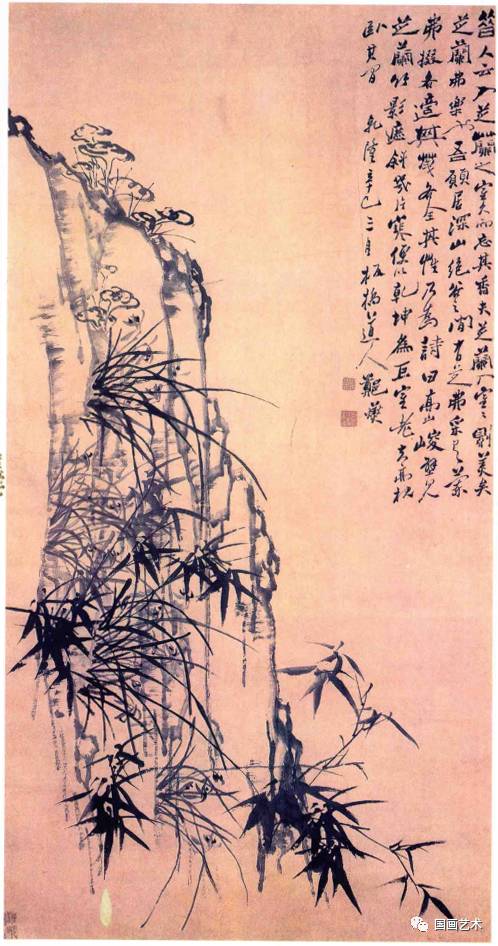 昔人云入芝蘭之室久而忘其香夫芝蘭入室室則美矣
芝蘭弗樂也吾願居深山絕谷之間有芝弗采有蘭
弗掇各適其天各全其性乃為詩曰高山峻壁見
芝蘭竹影遮斜幾片寒便以乾坤為巨室老夫高枕
臥其間 乾隆辛巳三月板橋道人鄭燮
国画艺术